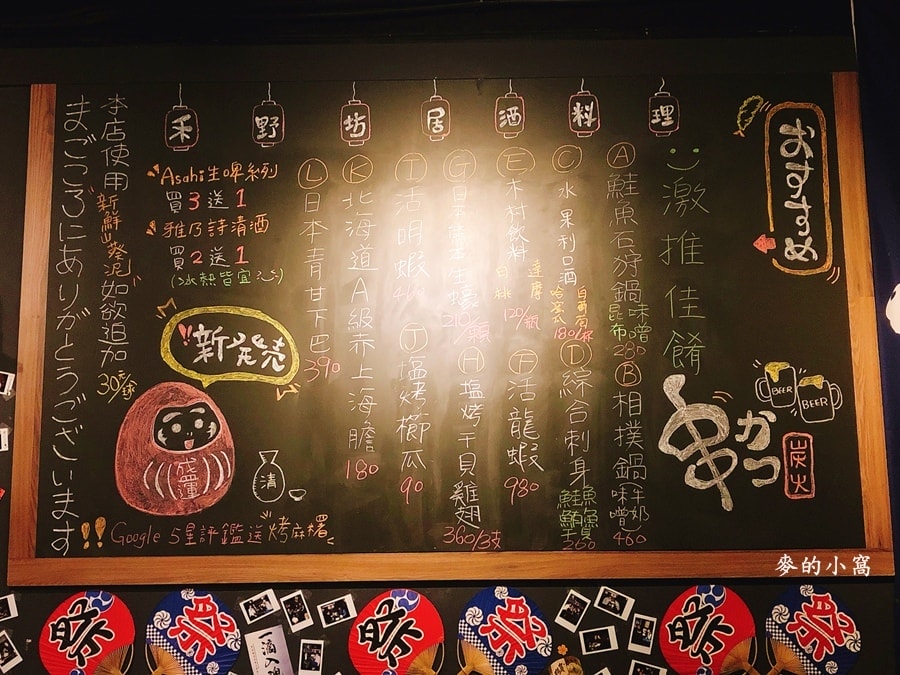 禾野坊居酒料理
おすすめ
激推佳餚
串かつ
炭火
BEER
BEER
Ⓐ鮭魚石狩鍋 味噌 昆布 280
Ⓑ相撲鍋(牛奶 味噌) 460
Ⓒ水果利口酒 白葡萄 哈蜜瓜 180/杯
Ⓓ綜合刺身 鮭魚 鮪魚 260
Ⓔ木村飲料 達摩 白桃 120/瓶
Ⓕ活龍蝦 980
Ⓖ日本 生蠔 210/顆
Ⓗ塩烤干貝雞翅 360/3支
Ⓘ活明蝦 460
Ⓙ塩烤櫛瓜 90
Ⓚ北海道A級赤上海膽 180
Ⓛ日本青甘下巴 390
Asahi生啤系列
買3送1
雅乃詩清酒
買2送1
(冰熱皆宜)
新発売
盛運
清
Google 5星評鑑送烤麻糬
本店使用新鮮山葵泥如欲追加 30元/球
まごころにありがとうございます!!
麥的小窩
祭
祭
祭
祭
祭
祭